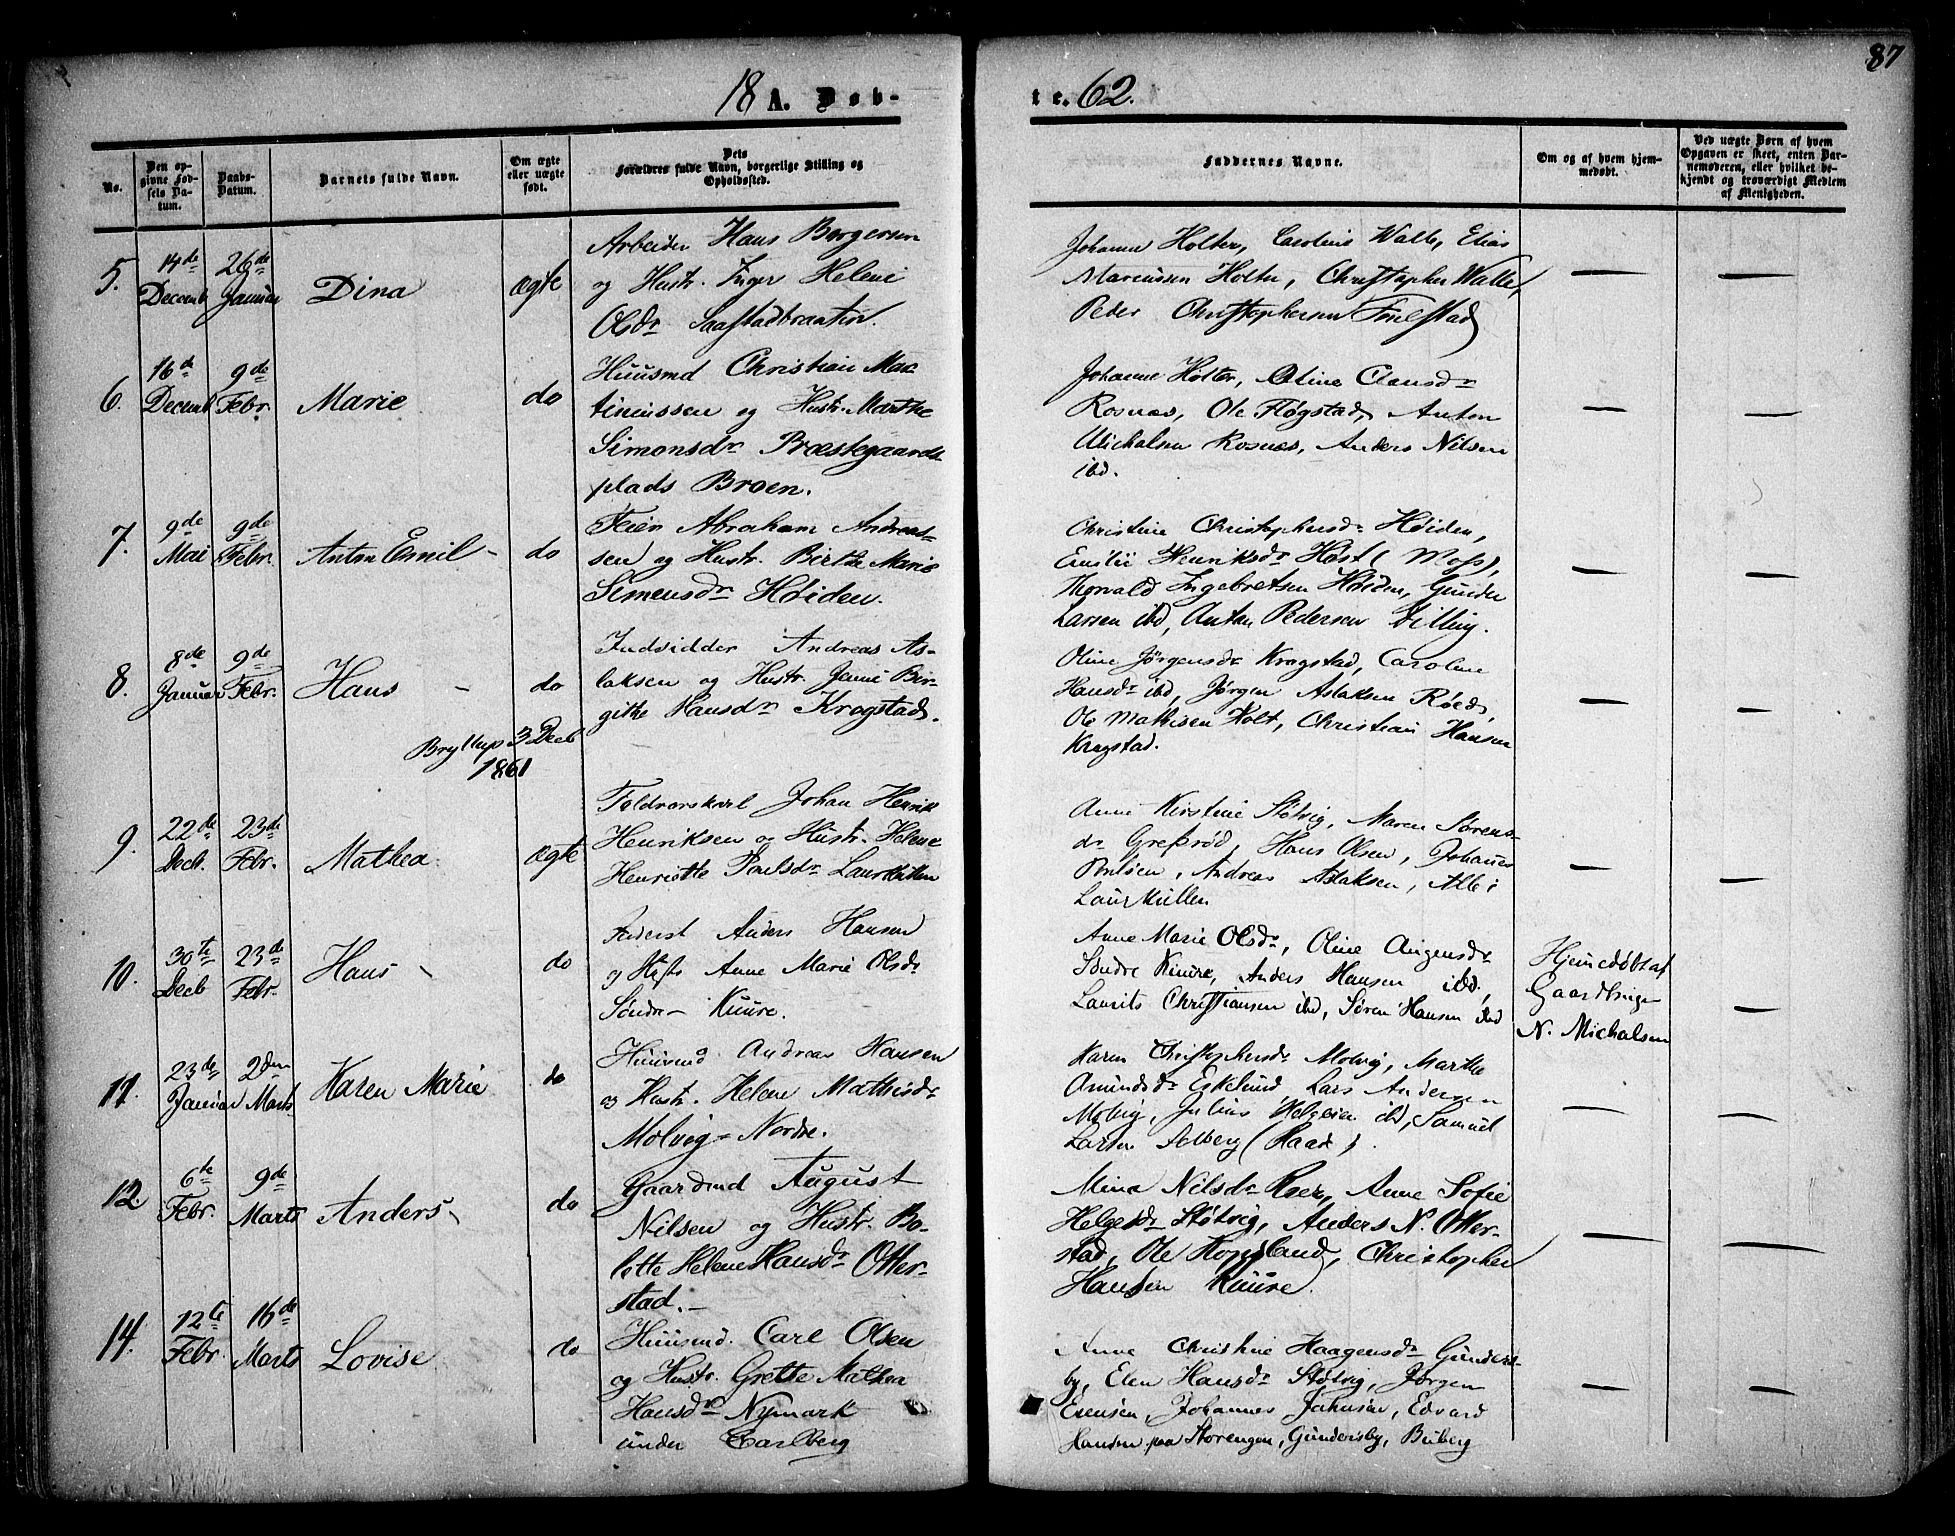 87
18 A. Døb-
te. 62.
No.
Den op-
givne Fød-
sels Da-
tum.
Daabs-
Datum.
Barnets fulde Navn.
Om ægte
eller uægte
født.
Dets
Forældres fulde Navn, borgerlige Stilling og
Opholdssted.
Faddernes Navne.
Om og af hvem hjem-
medøbt.
Ved uægte Børn af hvem
Opgaven er skeet, enten Bar-
nemoderen, eller hvilket be-
kjendt og troværdigt Medlem
af Menigheden.
5.
14de
Decemb
26de
Januar
Dina
ægte
Arbeider Hans Borgersen
og Hustr. Inger Helene
Olsdr Saastadbraaten.
Johanne Holter, Caroline Walle, Elias
Marcussen Holter, Christopher Walle,
Peder Christophersen
6.
16de
Decemb
9de
Febr.
Marie
do
Huusmd Christian Mar
tinussen og Hustr. Marthe
Simonsdr Præstegaards
plads Broen.
Johanne Holter, Oline Clausdr
Rosnæs, Ole Fløgstad, Anton
Michalsen Rosnæs, Anders Nilsen
ibd.
7.
9de
Mai
9de
Febr.
Anton Emil –
do
Feier Abraham Andreas-
sen og Hustr. Birthe Marie
Simensdr Høiden.
Christine Christophersdr Høiden,
Emilie Henriksdr Høst (Moss),
Thorvald Ingebretsen Høiden, Gunder
Larsen ibd, Anton Pedersen Dilling.
8.
8de
Januar
9de
Febr.
Hans –
do
Indsidder Andreas As-
laksen og Hustr. Jenne Bir-
githe Hansdr Krogstad.
Bryllup 3 Decb
1861
Oline Jørgensdr Krogstad, Caroline
Hansdr ibd, Jørgen Aslaksen Røed,
Ole Mathisen Holt, Christian Hansen
Krogstad.
9.
22de
Decb.
23de
Febr.
Mathea.
ægte
Toldrorskarl Johan Henrik
Henriksen og Hustr. Helene
Henriette Paulsdr Laurkullen
Anne Kirstine Støtvig, Maren Sørens-
dr Gresrød, Hans Olsen, Johannes
Poulsen, Andreas Aslaksen, Alle i
Laurkullen
10.
30te
Decb
23de
Febr.
Hans –
do
Inderst Anders Hansen
og Anne Marie Olsdr
Søndre – Kuure.
Anne Marie Olsdr, Oline
Søndre Kuure, Anders Hansen ibd,
Laurits Christiansen ibd, Søren Hansen ibd
Hjemedøbt af
Gaardbruger
N. Michalsen
11.
23de
Januar
2den
Marts
Karen Marie
do
Huusmd Andreas Hansen
og Hustr. Helene Mathisdr
Molvig – Nordre.
Karen Christophersdr Molvig, Marthe
Amundsdr Eskelund, Lars Andersen
Molvig, Julius Helgesen ibd, Samuel
Larsen Solberg (Raade).
12.
6te
Febr.
9de
Marts
Anders
do
Gaardmd August
Nilsen og Hustr. Bo-
lette Helene Hansdr Otter-
stad. –
Mina Nilsdr Roer, Anne Sofie
Helgesdr Støtvig, Anders N. Otter-
stad, Ole Kopsland, Christopher
Hansen Kuure.
14.
12te
Febr.
16de
Marts
Lovise
do
Huusmd. Carl Olsen
og Hustr. Grethe Mathea
Hansdr Nymark
under Carlberg
Anne Christine Haagensdr Gunders-
by, Elen Hansdr Støtvig, Jørgen
Evensen, Johannes Johnsen, Edvard
Hansen paa Storengen, Gundersby, Buberg